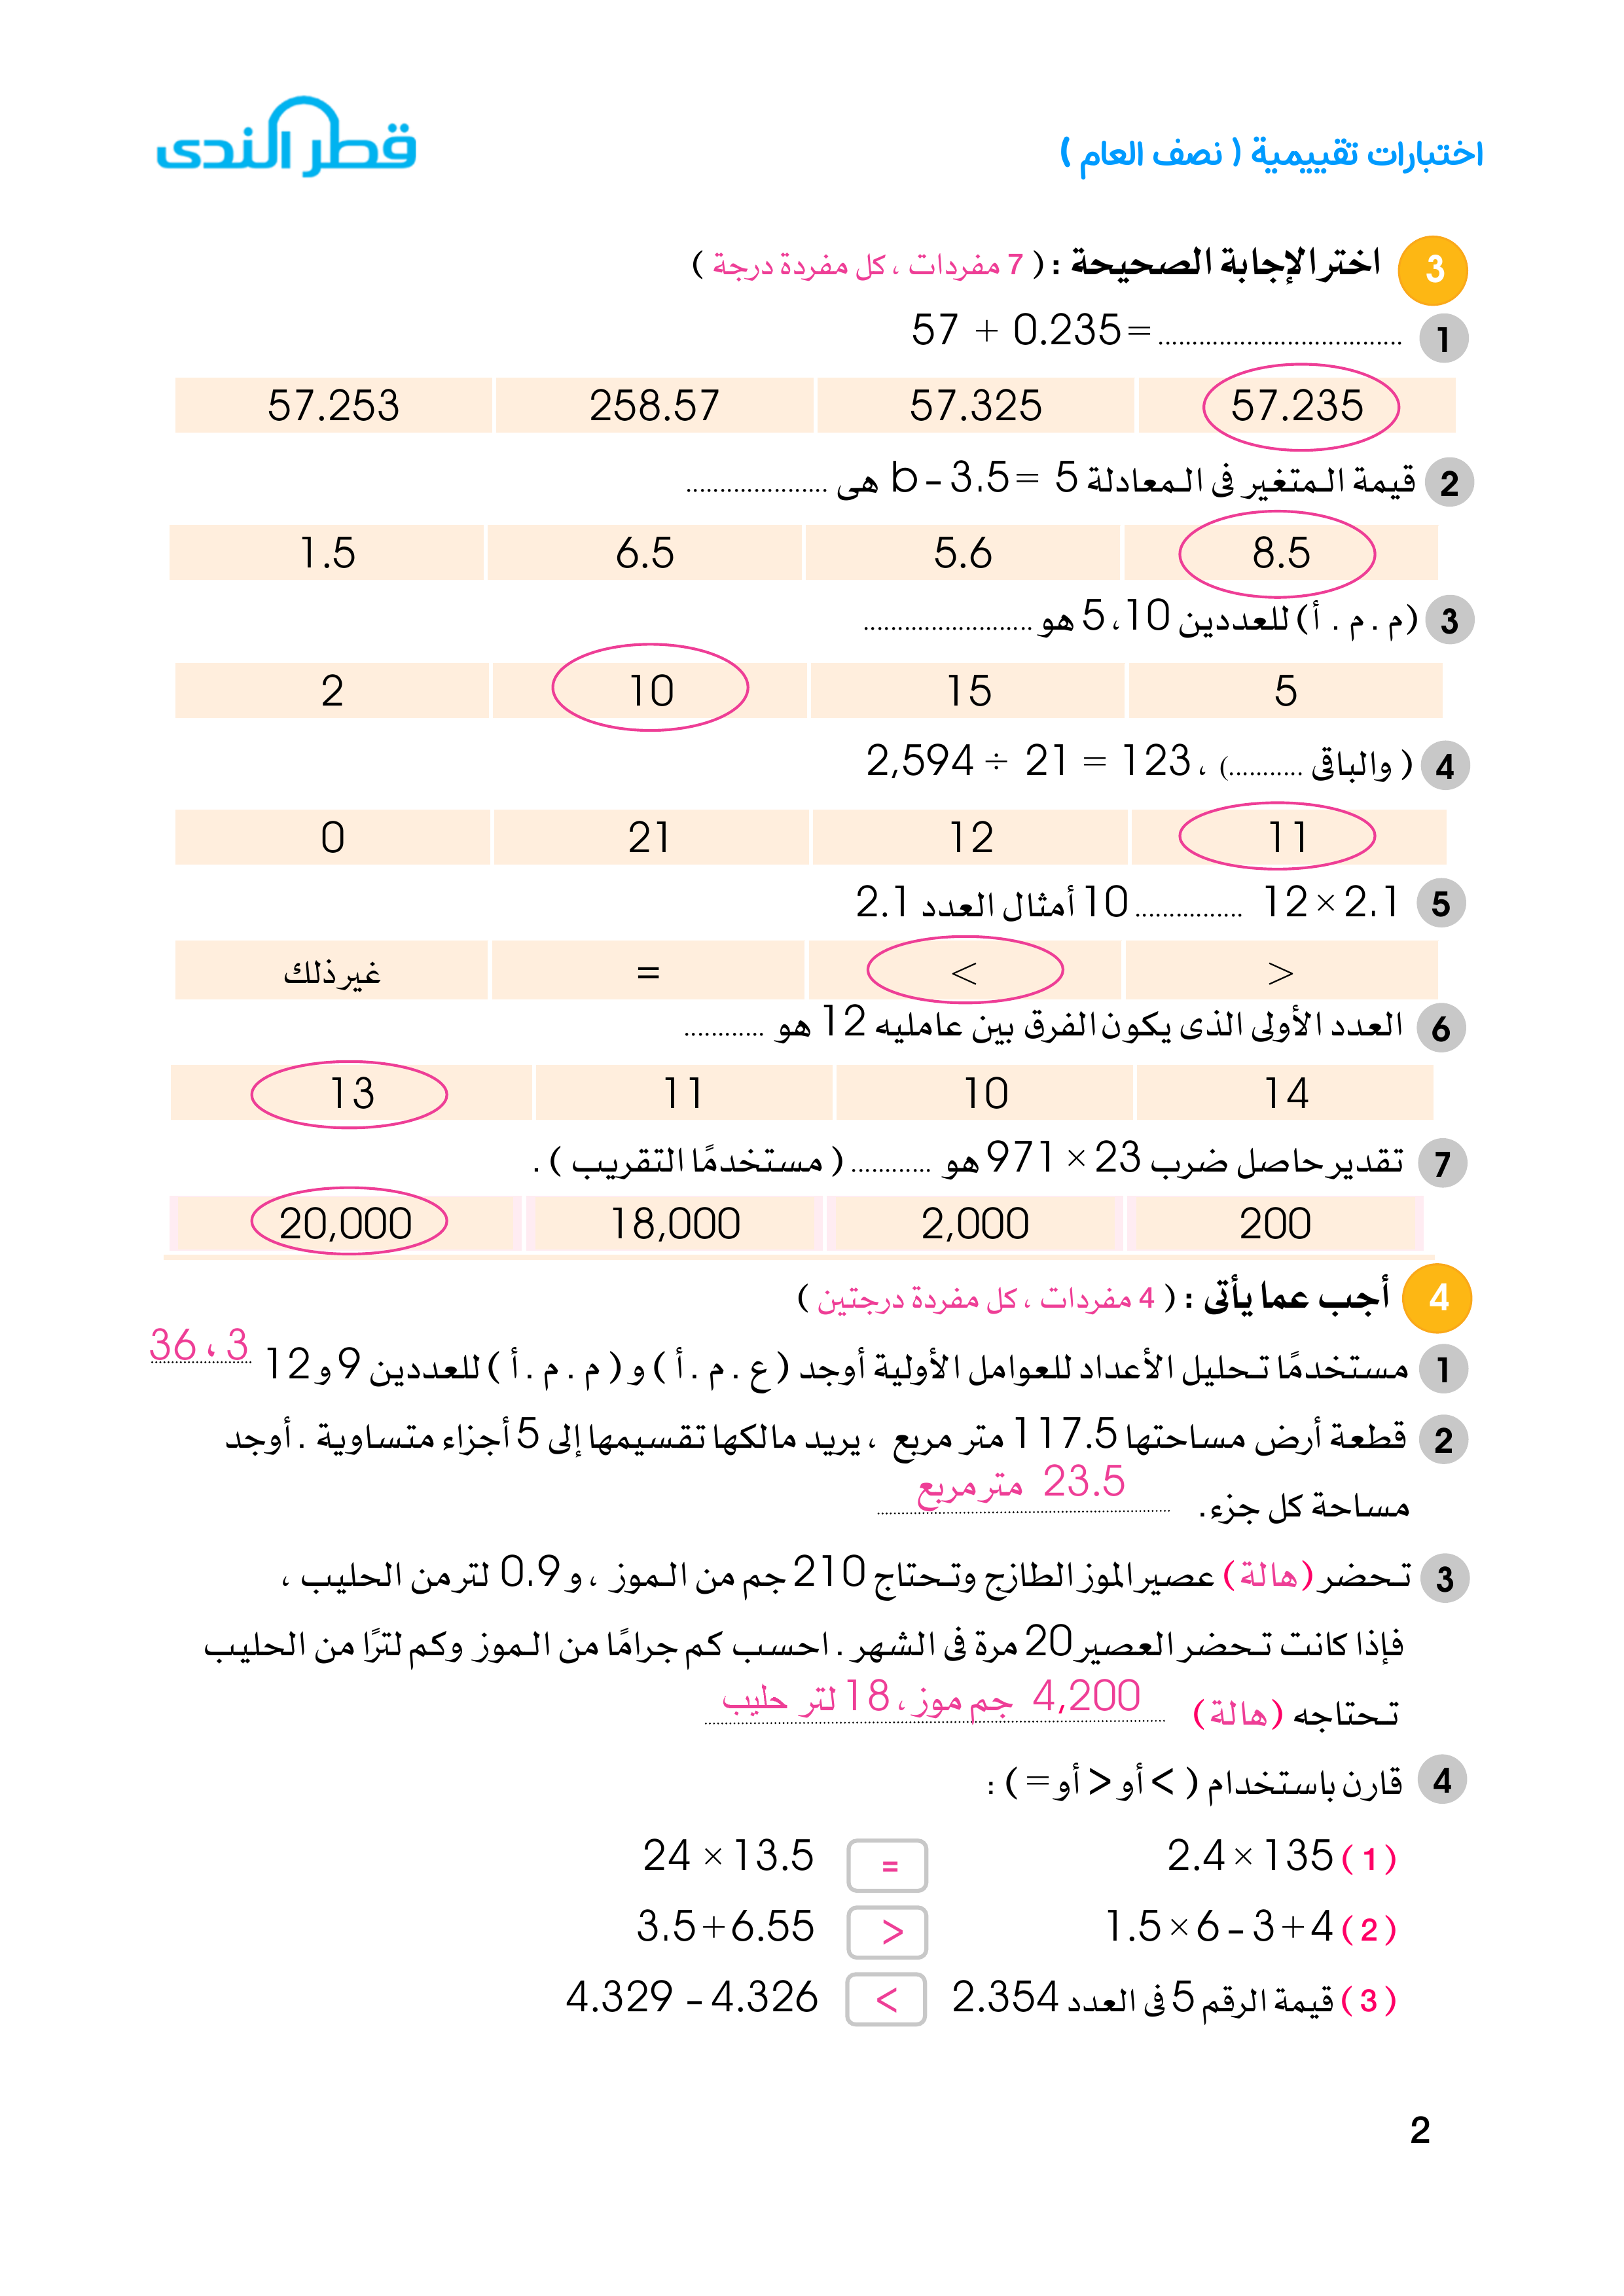 اختبارات تقييمية ( نصف العام )
قطر الندى
3 اختر الإجابة الصحيحة : ( 7 مفردات ، كل مفردة درجة )
1 57 + 0.235 = ..................
57.235 57.325 258.57 57.253
2 قيمة المتغير فى المعادلة b - 3.5 = 5 هى ..................
8.5 5.6 6.5 1.5
3 (م . م . أ) للعددين 10 ، 5 هو ..................
5 15 10 2
4 2,594 ÷ 21 = 123 ، ( والباقى ...........)
11 12 21 0
5 12 × 2.1 ................ 10 أمثال العدد 2.1
> < = غير ذلك
6 العدد الأولى الذى يكون الفرق بين عامليه 12 هو ............
14 10 11 13
7 تقدير حاصل ضرب 23 × 971 هو ............ ( مستخدمًا التقريب ) .
200 2,000 18,000 20,000
4 أجب عما يأتى : ( 4 مفردات ، كل مفردة درجتين )
1 مستخدمًا تحليل الأعداد للعوامل الأولية أوجد ( ع . م . أ ) و ( م . م . أ ) للعددين 9 و 12 3 ، 36
2 قطعة أرض مساحتها 117.5 متر مربع ، يريد مالكها تقسيمها إلى 5 أجزاء متساوية . أوجد
مساحة كل جزء. 23.5 متر مربع
3 تحضر (هالة) عصير الموز الطازج وتحتاج 210 جم من الموز ، و 0.9 لتر من الحليب ،
فإذا كانت تحضر العصير 20 مرة فى الشهر . احسب كم جرامًا من الموز وكم لترًا من الحليب
تحتاجه (هالة) 4,200 جم موز ، 18 لتر حليب
4 قارن باستخدام ( < أو > أو = ) :
(1) 2.4 × 135 = 24 × 13.5
(2) 1.5 × 6 - 3 + 4 > 3.5 + 6.55
(3) قيمة الرقم 5 فى العدد 2.354 < 4.329 - 4.326
2